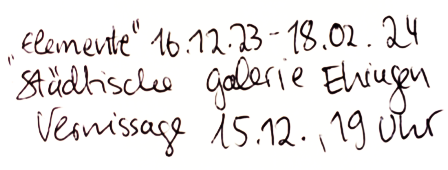 „Elemente" 16.12.23 - 18.02.24
Städtische Galerie Ehingen
Vernissage 15.12., 19 Uhr